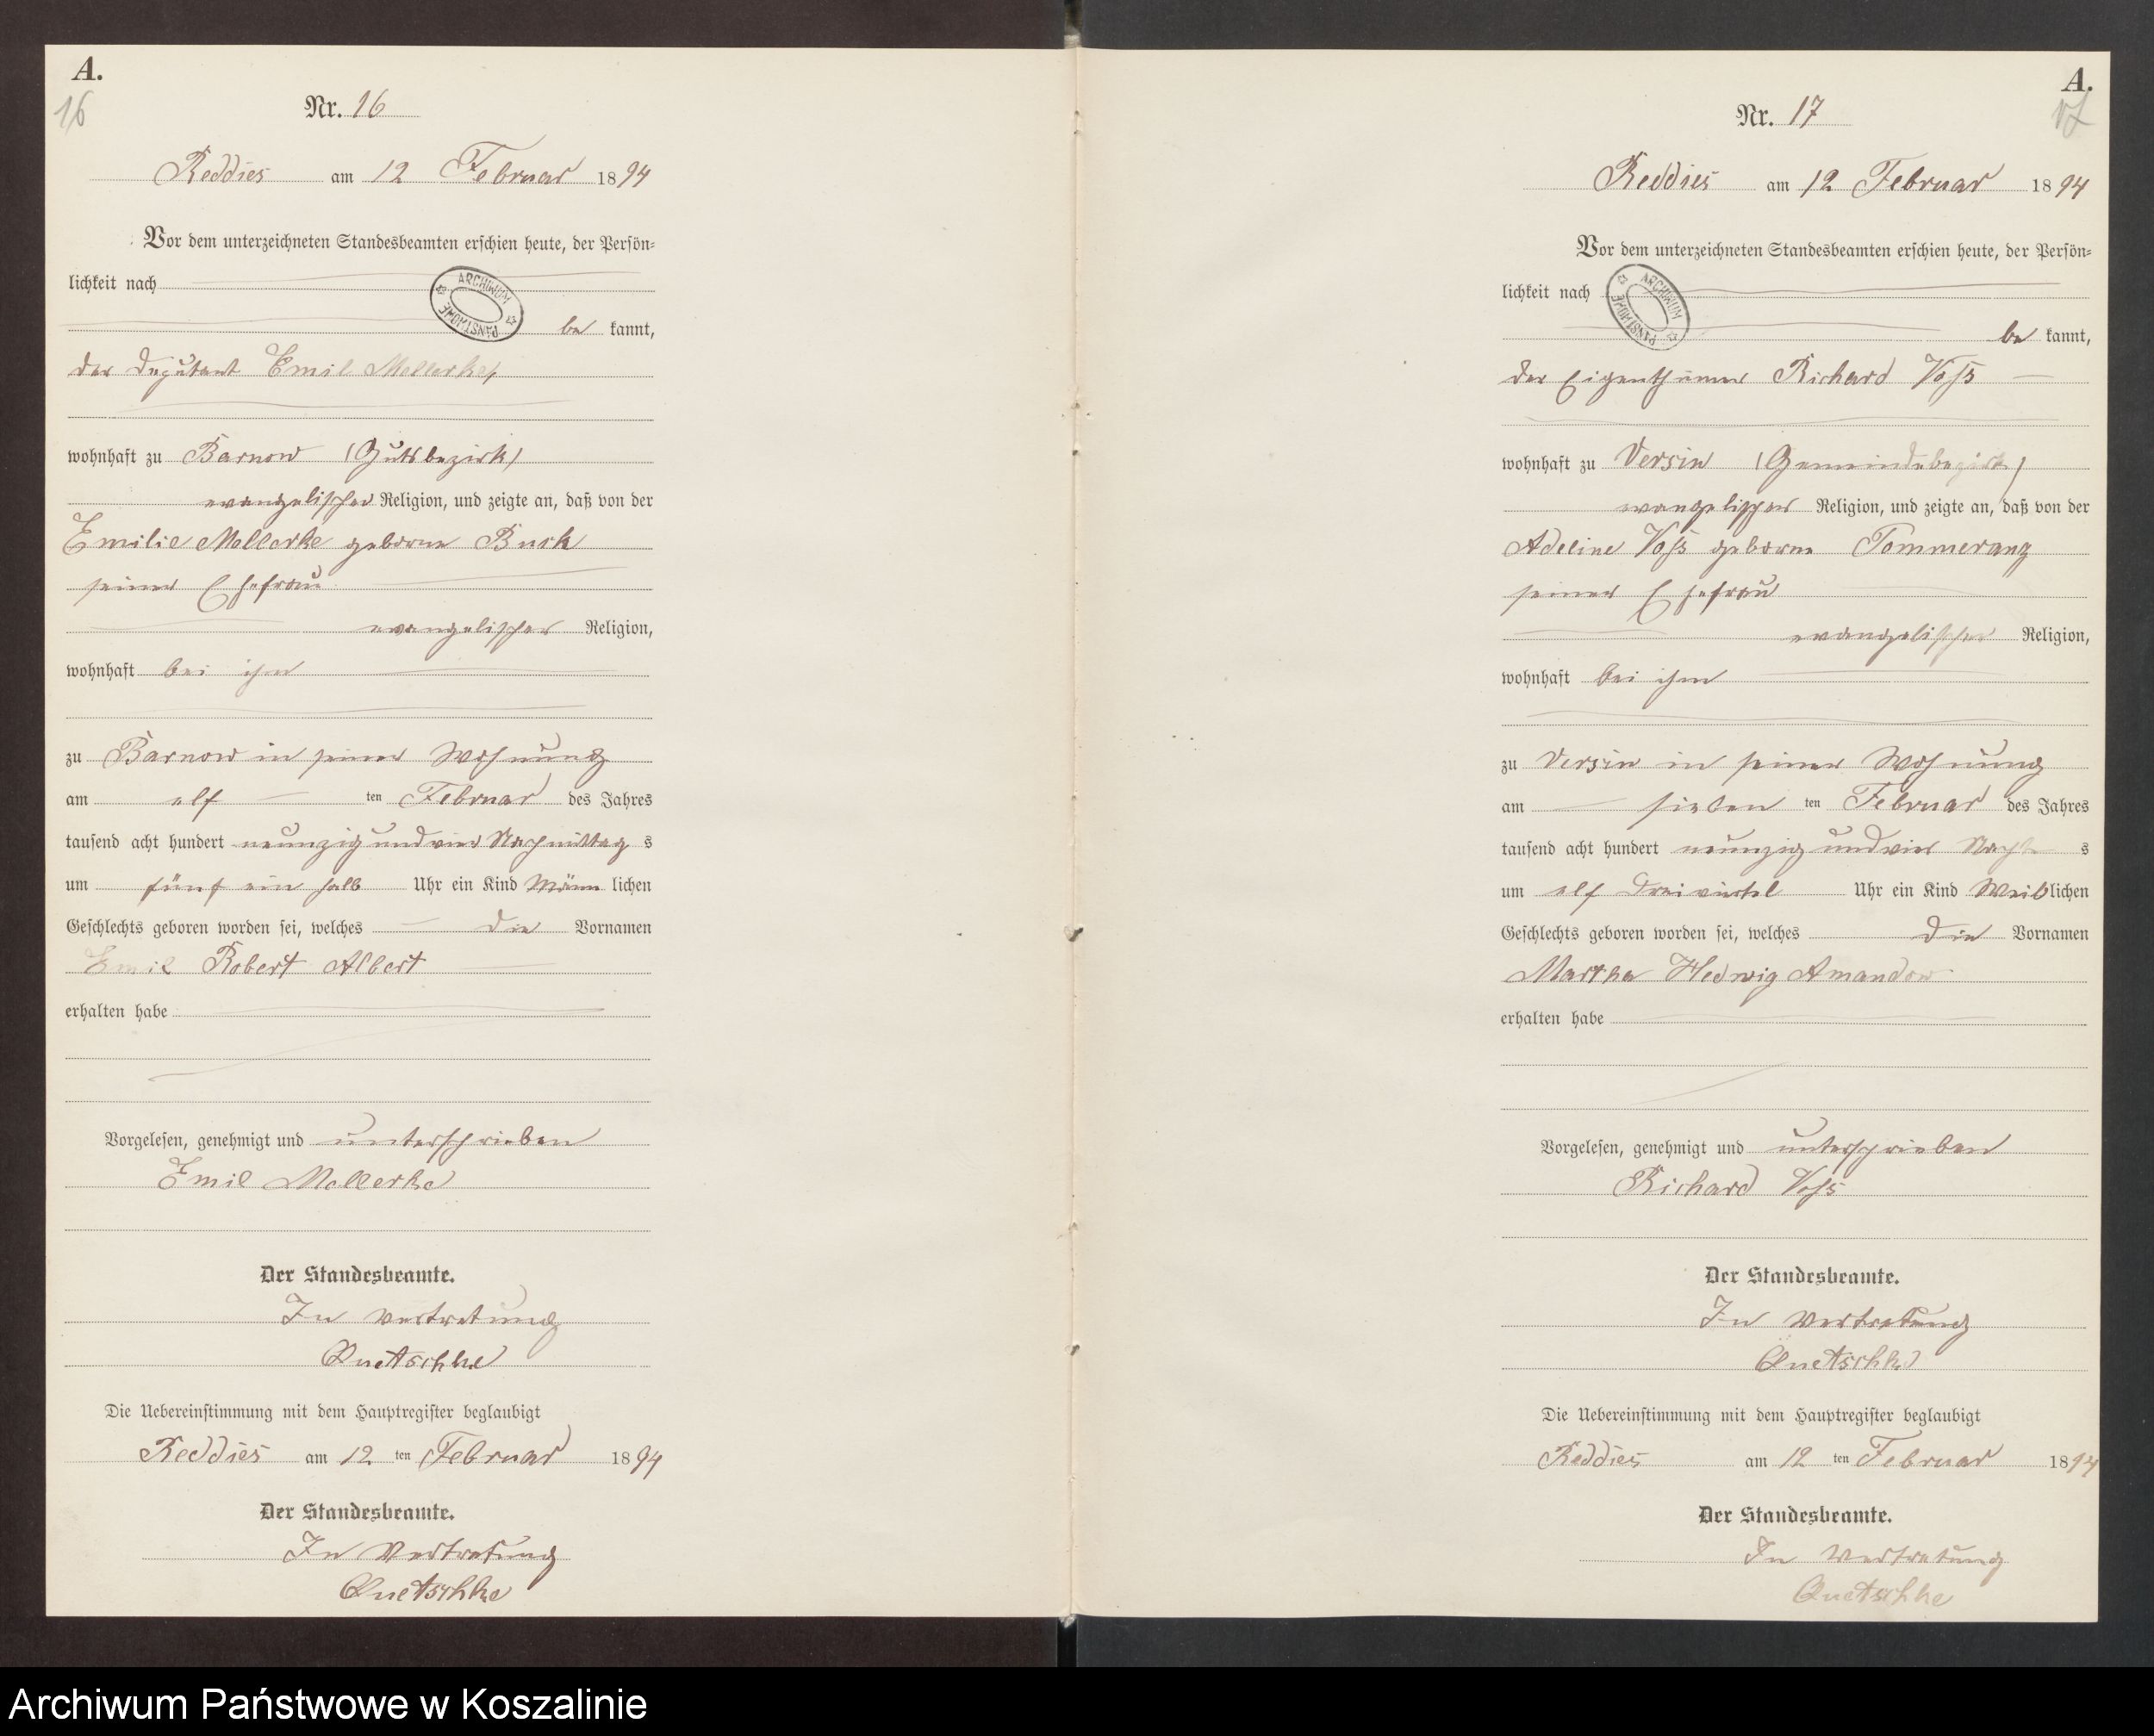 A.
16
Nr. 16
Reddies am 12 Februar 1894
Vor dem unterzeichneten Standesbeamten erschien heute, der Persön=
lichkeit nach
ARCHIWUM PAŃSTWOWE
be kannt,
der Deputant Emil Mellerke,
wohnhaft zu Barnow (Gutsbezirk)
evangelischer Religion, und zeigte an, daß von der
Emilie Mellerke geborne Buck
seiner Ehefrau
evangelischer Religion,
wohnhaft bei ihm
zu Barnow in seiner Wohnung
am elf ten Februar des Jahres
tausend acht hundert neunzig und vier Nachmittag s
um fünf ein halb Uhr ein Kind männ lichen
Geschlechts geboren worden sei, welches die Vornamen
Emil Robert Albert
erhalten habe
Vorgelesen, genehmigt und unterschrieben
Emil Mellerke
Der Standesbeamte.
In Vertretung
Quetschke
Die Uebereinstimmung mit dem Hauptregister beglaubigt
Reddies am 12 ten Februar 1894
Der Standesbeamte.
In Vertretung
Quetschke
A.
17
Nr. 17
Reddies am 12 Februar 1894
Vor dem unterzeichneten Standesbeamten erschien heute, der Persön=
lichkeit nach
ARCHIWUM PAŃSTWOWE
be kannt,
der Eigenthümer Richard Voß
wohnhaft zu Versin (Gemeindebezirk)
evangelischer Religion, und zeigte an, daß von der
Adeline Voß geborne Pommerang
seiner Ehefrau
evangelischer Religion,
wohnhaft bei ihm
zu Versin in seiner Wohnung
am sieben ten Februar des Jahres
tausend acht hundert neunzig und vier Nacht s
um elf dreiviertel Uhr ein Kind weib lichen
Geschlechts geboren worden sei, welches die Vornamen
Martha Hedwig Amanda
erhalten habe
Vorgelesen, genehmigt und unterschrieben
Richard Voß
Der Standesbeamte.
In Vertretung
Quetschke
Die Uebereinstimmung mit dem Hauptregister beglaubigt
Reddies am 12 ten Februar 1894
Der Standesbeamte.
In Vertretung
Quetschke
Archiwum Państwowe w Koszalinie